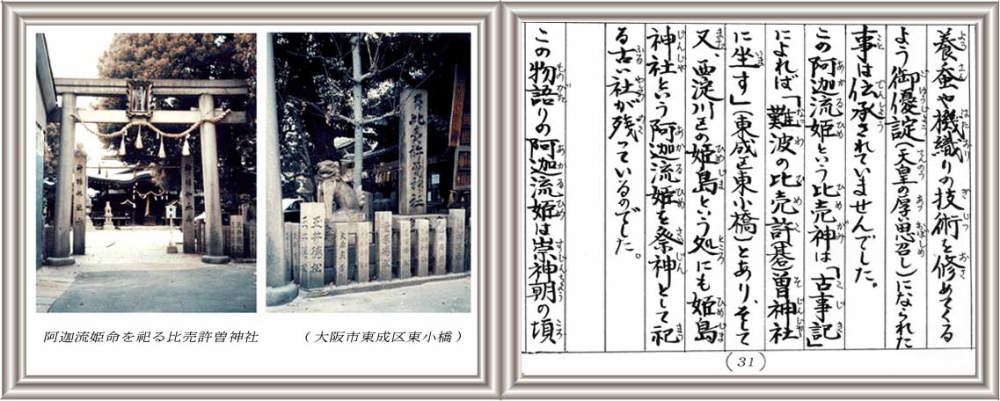 比売許曽神社
阿迦流姫命を祀る比売許曽神社　（大阪市東成区東小橋）
養蚕や機織りの技術を修めてくる
よう御優諚（天皇の厚思召し）になられた
事は伝承されていませんでした。
この阿迦流姫という比売神は「古事記」
によれば「難波の比売許(碁)曽神社
に坐す」（東成区東小橋）とあり、そして
又、西淀川区の姫島という処にも姫島
神社という阿迦流姫を祭神として祀
る古い社が残っているのでした。
この物語りの阿迦流姫は崇神朝の頃
(31)